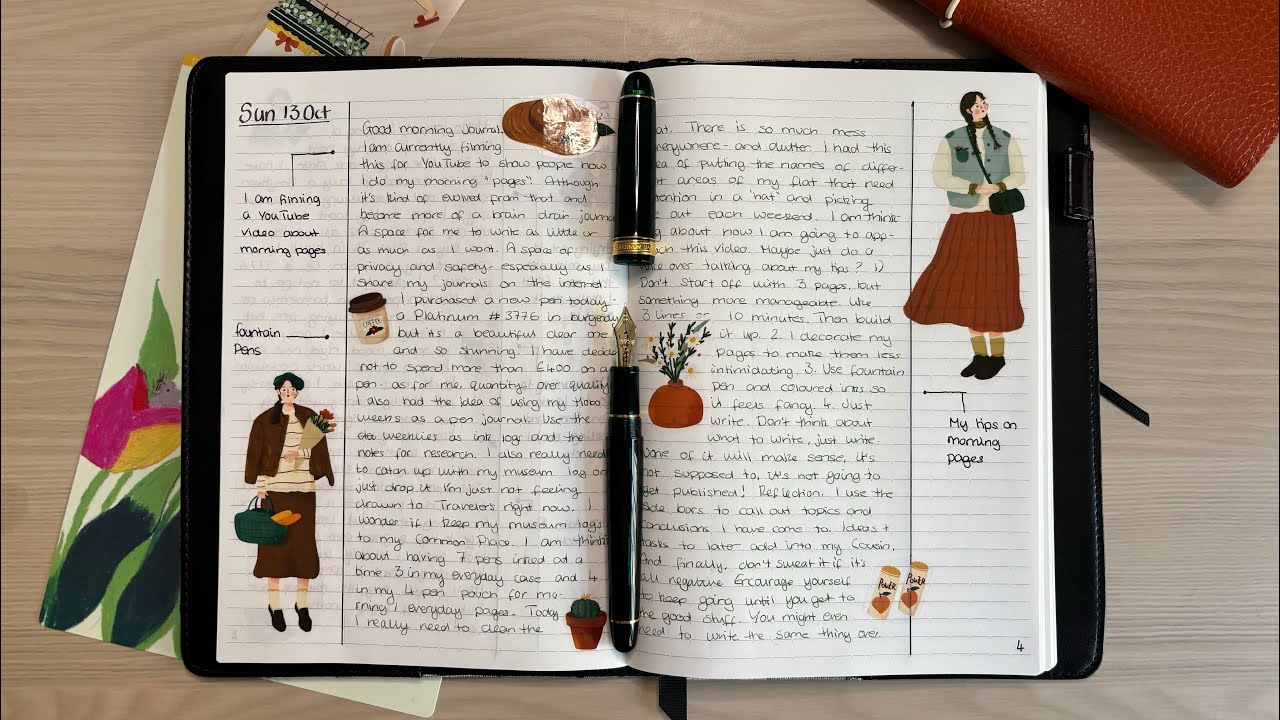 Sun 13 Oct
I am filming
a YouTube
video about
morning pages
fountain
pens
Good morning Journal.
I am currently filming
this for YouTube to show people how
I do my morning "pages". Although
it's kind of evolved from that and
become more of a brain drain journal
A space for me to write as little or
as much as I want. A space of
privacy and safety- especially as I
share my journals on the internet.
I purchased a new pen today-
a Platinum #3776 in burgundy
but it's a beautiful clear one
and so stunning. I have decided
not to spend more than £100 on a
pen- as for me, quantity over quality
I also had the idea of using my Hobo
weeks as a pen journal. Use the
weeklies as ink log and the
notes for research. I also really need
to catch up with my museum log or
just drop it. I'm just not feeling
drawn to Travelers right now. I
wonder if I keep my museum logs
to my Common Place. I am thinking
about having 7 pens inked at a
time. 3 in my everyday case and 4
in my 4 pen pouch for mo-
rning/everyday pages. Today
I really need to clean the
COFFEE
flat. There is so much mess
everywhere- and clutter. I had this
idea of putting the names of differ-
areas of my flat that need
attention in a 'hat' and picking
one out each weekend. I am think-
ing about how I am going to app-
this video. Maybe just do a
over talking about my tips? 1)
Don't start off with 3 pages, but
something more manageable. Like
3 lines or 10 minutes. Then build
it up. 2. I decorate my
pages to make them less
intimidating. 3. Use fountain
pen and coloured inks so
it feels fancy. 4. Just
write. Don't think about
what to write, just write.
None of it will make sense, it's
not supposed to, it's not going to
get published! Reflection. I use the
side bars to call out topics and
conclusions I have come to. Ideas +
tasks to later add into my Cousin.
And finally, don't sweat it if it's
all negative. Encourage yourself
to keep going until you get to
the good stuff. You might even
need to write the same thing over
My tips on
morning
pages
4